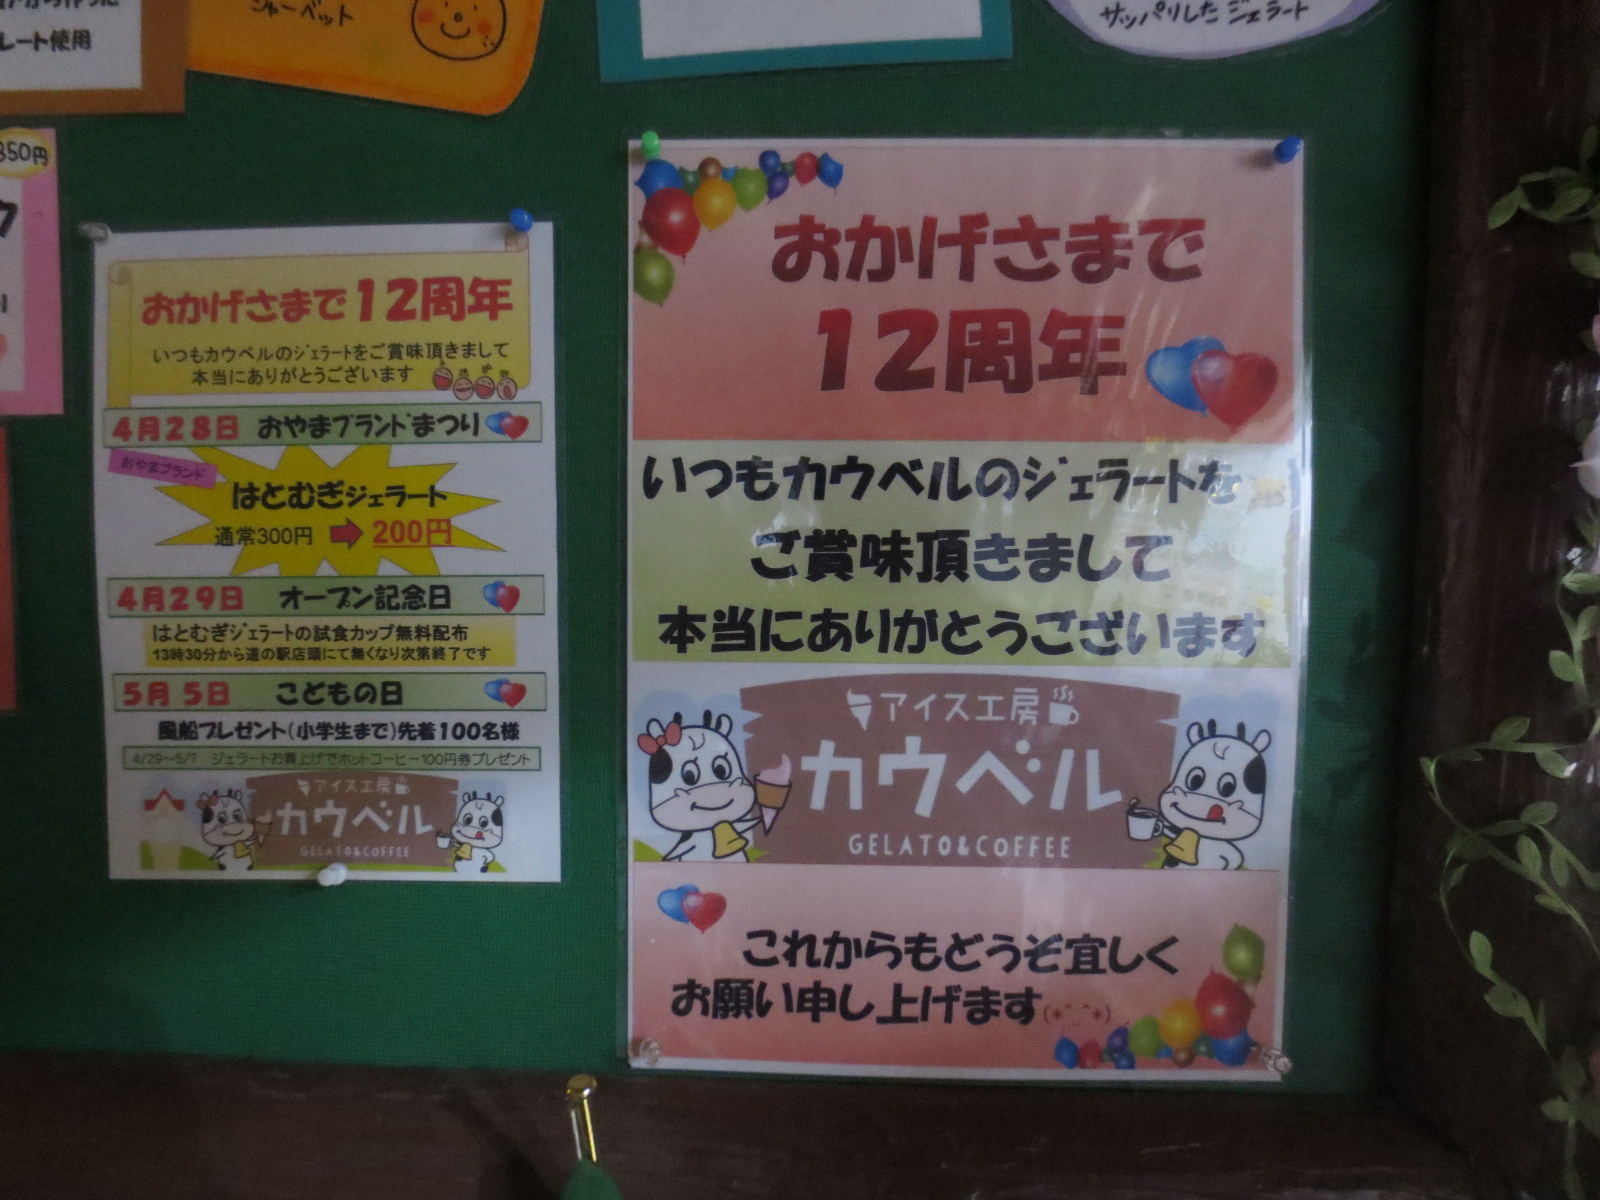 レート使用
シャーベット
サッパリしたジェラート
350円
おかげさまで12周年
いつもカウベルのジェラートをご賞味頂きまして
本当にありがとうございます
4月28日 おやまブランドまつり
おやまブランド
はとむぎジェラート
通常300円 200円
4月29日 オープン記念日
はとむぎジェラートの試食カップ無料配布
13時30分から道の駅店頭にて無くなり次第終了です
5月5日 こどもの日
風船プレゼント(小学生まで)先着100名様
4/29〜5/7 ジェラートお買上げでホットコーヒー100円券プレゼント
アイス工房
カウベル
GELATO&COFFEE
おかげさまで
12周年
いつもカウベルのジェラートを
ご賞味頂きまして
本当にありがとうございます
アイス工房
カウベル
GELATO&COFFEE
これからもどうぞ宜しく
お願い申し上げます(*^_^*)